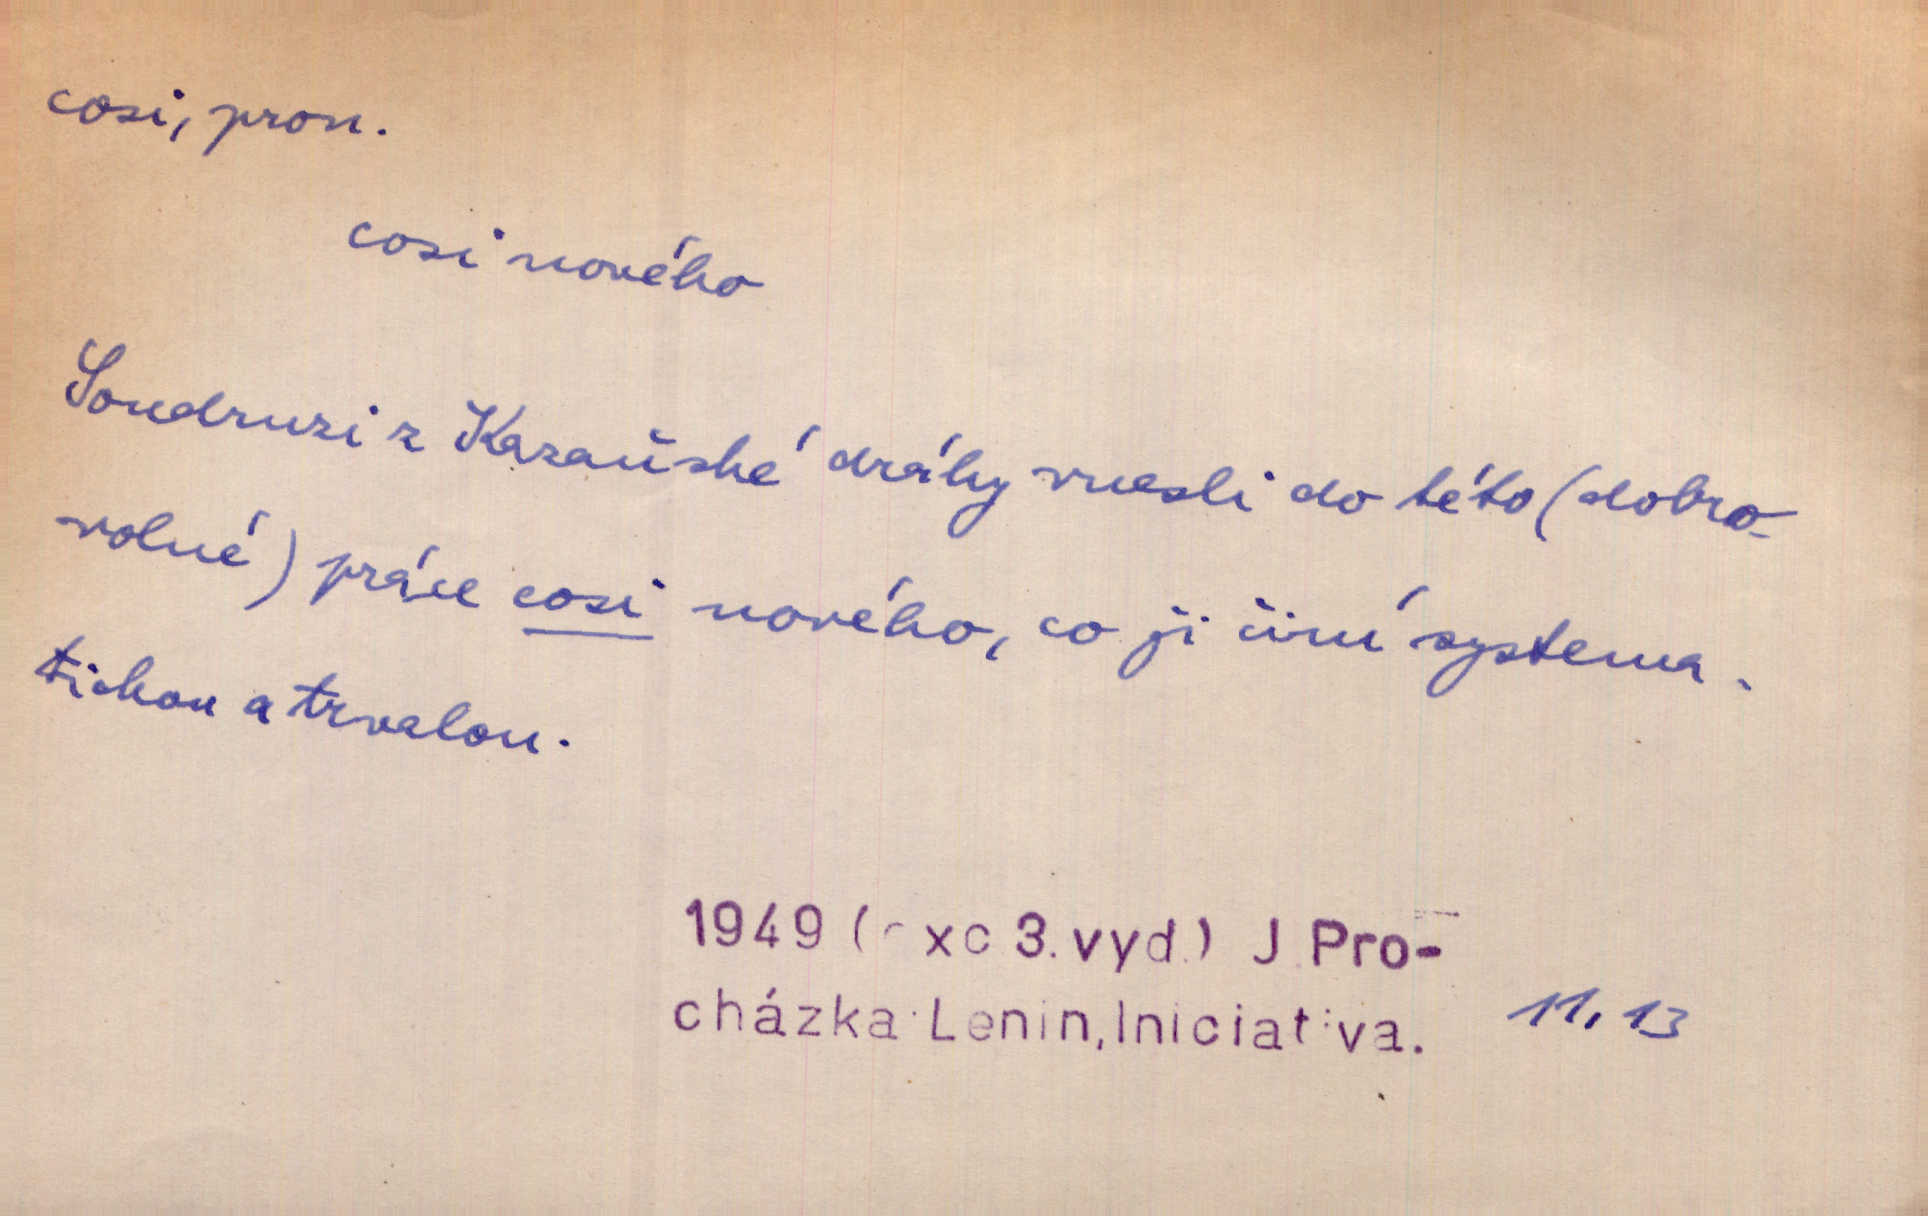 cosi, pron.
cosi nového
Soudruzi z Kazaňské dráhy vnesli do této (dobro-
volné) práce cosi nového, co ji činí systema-
tickou a trvalou.
1949 ( xc 3. vyd.) J Pro-
cházka Lenin, Iniciativa. 11, 13